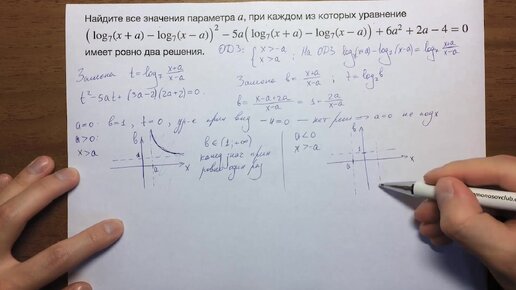 Найдите все значения параметра a, при каждом из которых уравнение
(log₇(x + a) − log₇(x − a))² − 5a(log₇(x + a) − log₇(x − a)) + 6a² + 2a − 4 = 0
имеет ровно два решения.
ОДЗ: { x > -a
x > a ; На ОДЗ log₇(x+a) - log₇(x-a) = log₇ (x+a)/(x-a)
Замена t = log₇ (x+a)/(x-a)
Замена b = (x+a)/(x-a) ; t = log₇b
t² - 5at + (3a-2)(2a+2) = 0.
b = (x-a+2a)/(x-a) = 1 + 2a/(x-a)
a=0: b=1, t=0, ур-е прин вид -4=0 — нет реш → a=0 не подх
a>0:
x>a
b
1
a
x
b ∈ (1; +∞)
кажд знач прин
ровно один раз
a<0
x>-a
b
1
a
x
monosovclub.com